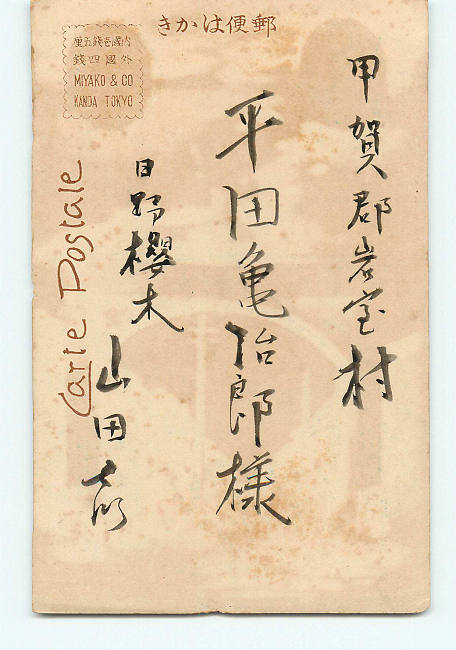 郵便はかき
内國壱錢五厘
外國四錢
MIYAKO & CO
KANDA TOKYO
Carte Postale
甲賀郡岩室村
平田亀治郎様
日野櫻木
山田